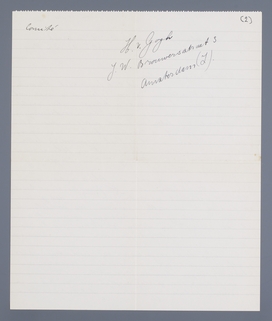 (1)
Comité
H v Gogh
J W Brouwersstraat 3
Amsterdam (Z)